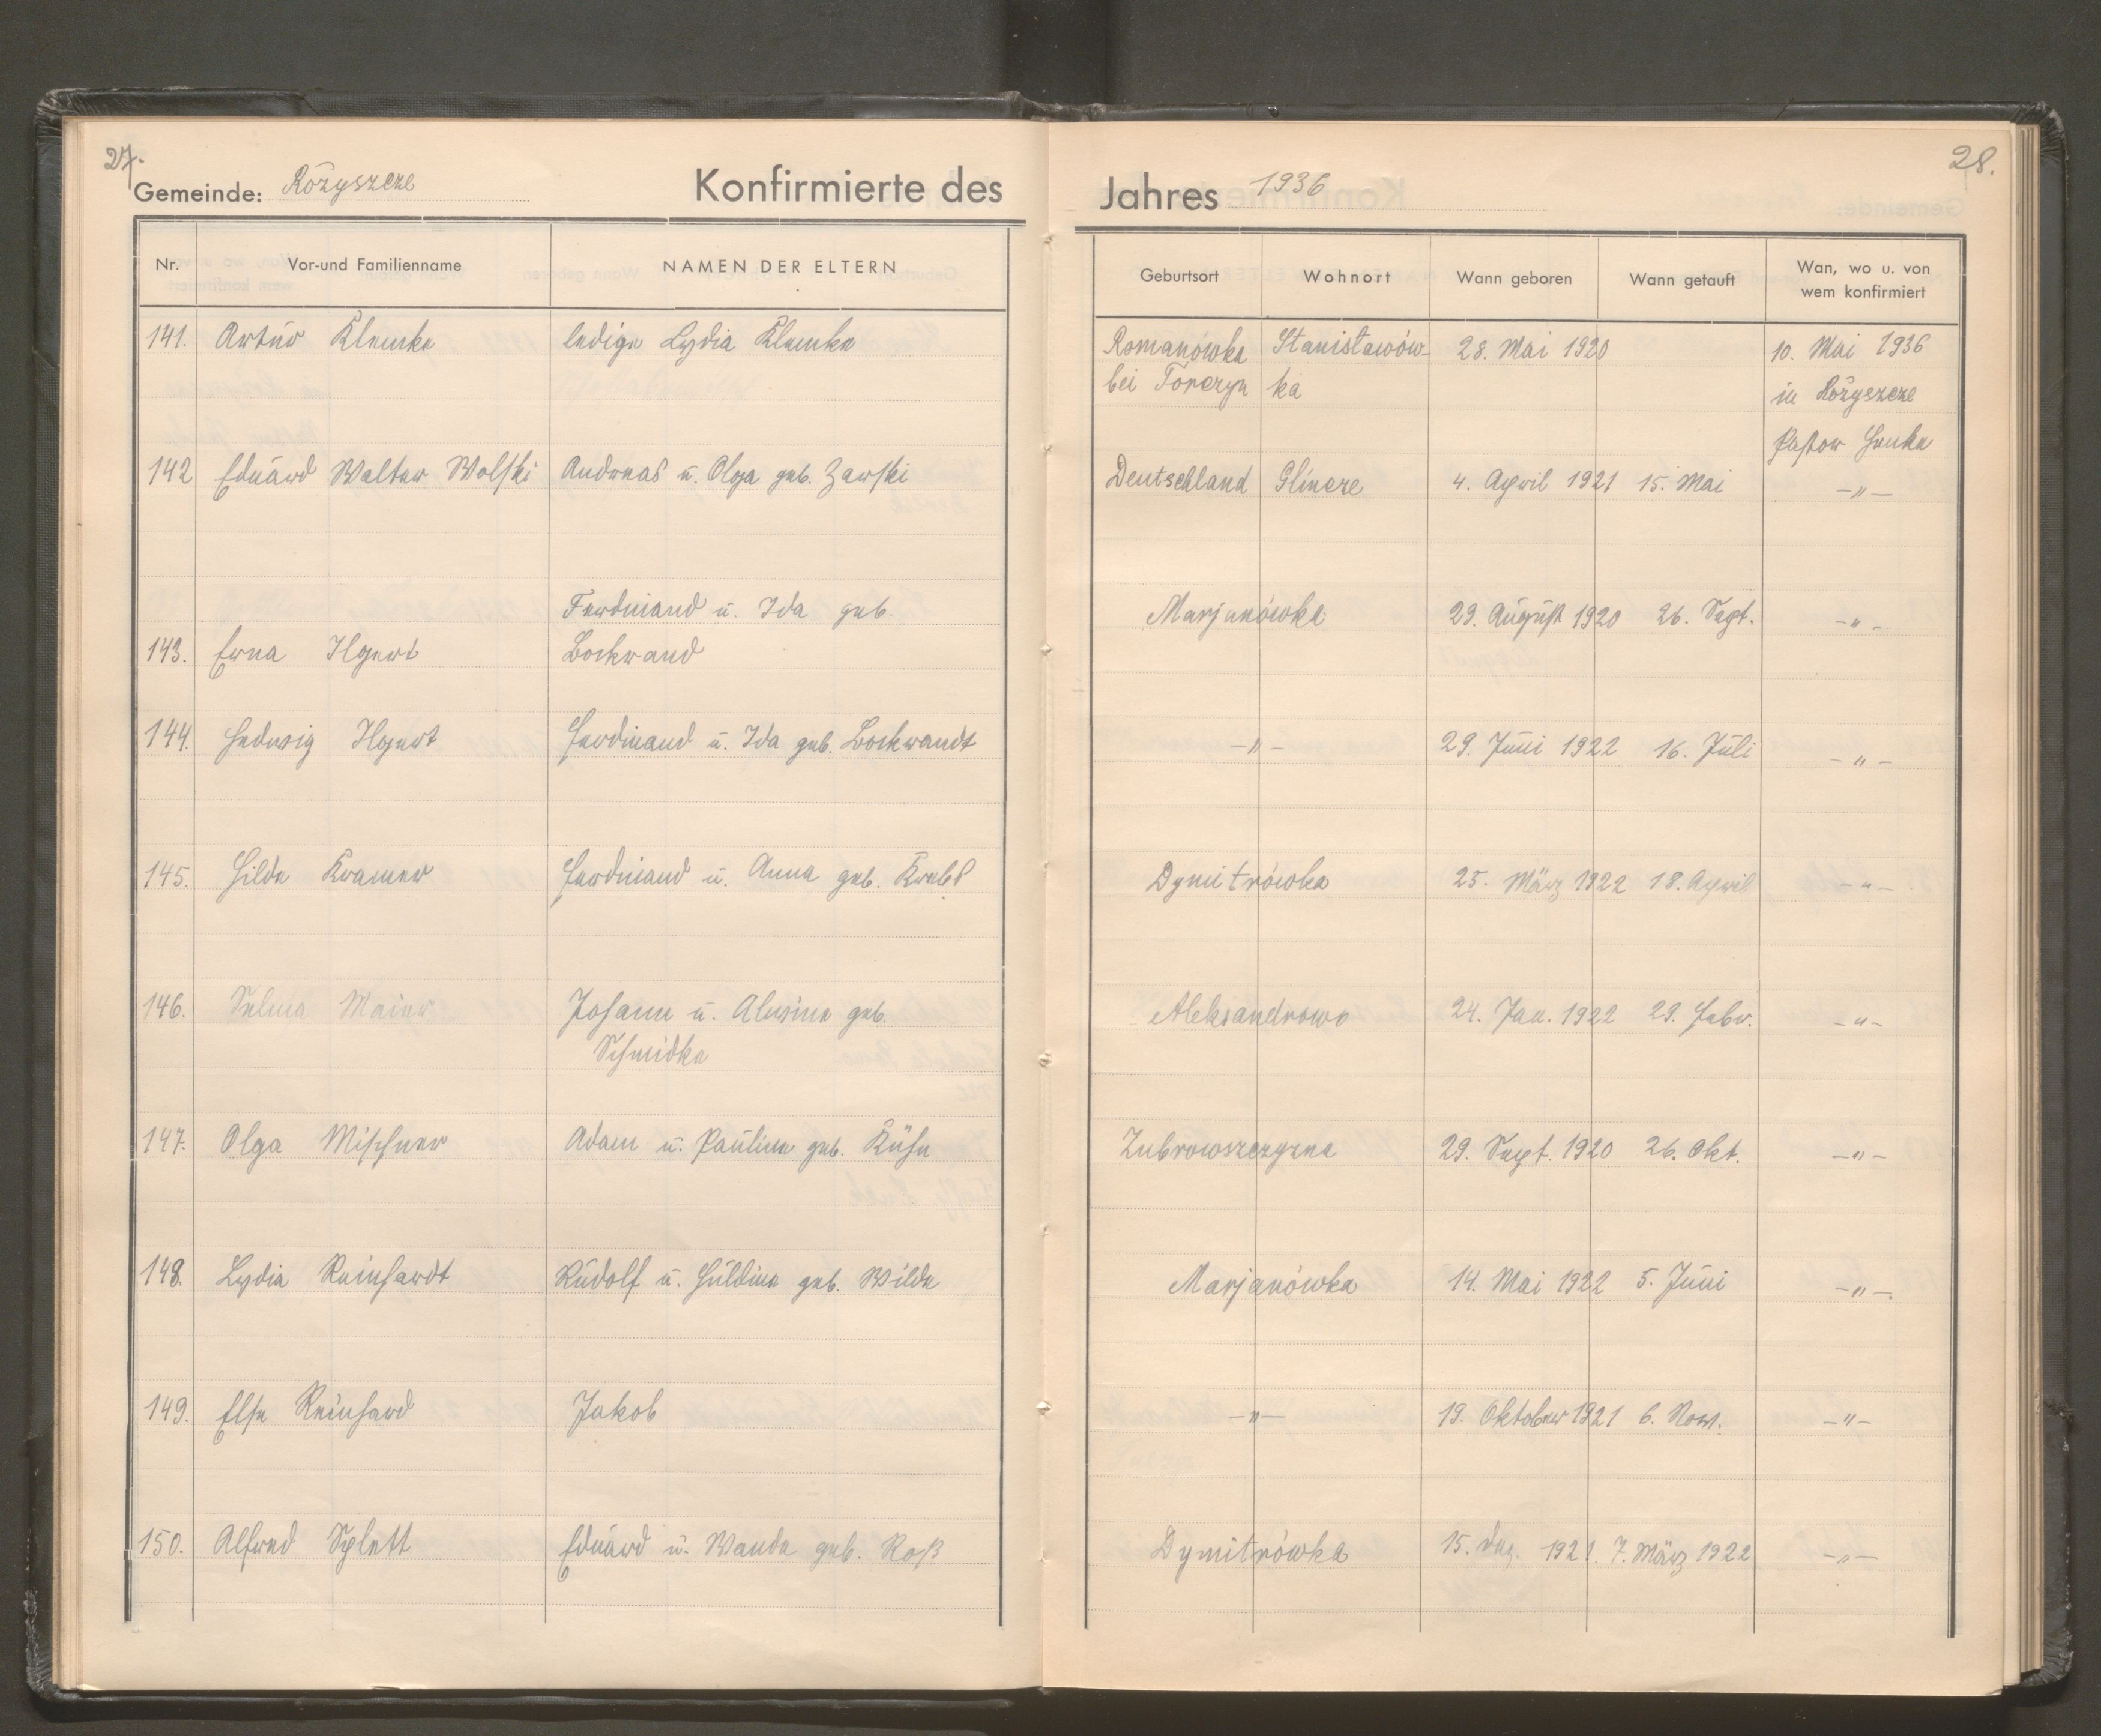 27.
Gemeinde: Rożyszcze
Konfirmierte des
Nr. Vor-und Familienname NAMEN DER ELTERN
141. Artur Klemke ledige Lydia Klemke
142 Eduard Walter Wolski Andreas u. Olga geb. Zarski
Ferdinand u. Ida geb.
143. Erna Ilgert Bockrand
144. Hedwig Ilgert Ferdinand u. Ida geb. Bockrandt
145. Hilde Kramer Ferdinand u. Anna geb. Krebs
146. Selma Maier Johann u. Alwine geb.
Schmidke
147. Olga Mischner Adam u. Pauline geb. Kühn
148. Lydia Reinhardt Rudolf u. Huldine geb. Wilde
149. Else Reinhard Jakob
150. Alfred Splett Eduard u. Wanda geb. Roß
28.
Jahres 1936
Geburtsort Wohnort Wann geboren Wann getauft Wan, wo u. von
wem konfirmiert
Romanówka Stanisławów- 28. Mai 1920 10. Mai 1936
bei Torczyn ka in Rożyszcze
Pastor Henke
Deutschland Glincze 4. April 1921 15. Mai -"-
Marjanówka 29. August 1920 26. Sept. -"-
-"- 29. Juni 1922 16. Juli -"-
Dymitrówka 25. März 1922 18. April -"-
Aleksandrowo 24. Jan. 1922 29. Febr. -"-
Zubrowszczyzna 29. Sept. 1920 26. Okt. -"-
Marjanówka 14. Mai 1922 5. Juni -"-
-"- 19. Oktober 1921 6. Nov. -"-
Dymitrówka 15. Dez. 1921. 7. März 1922 -"-